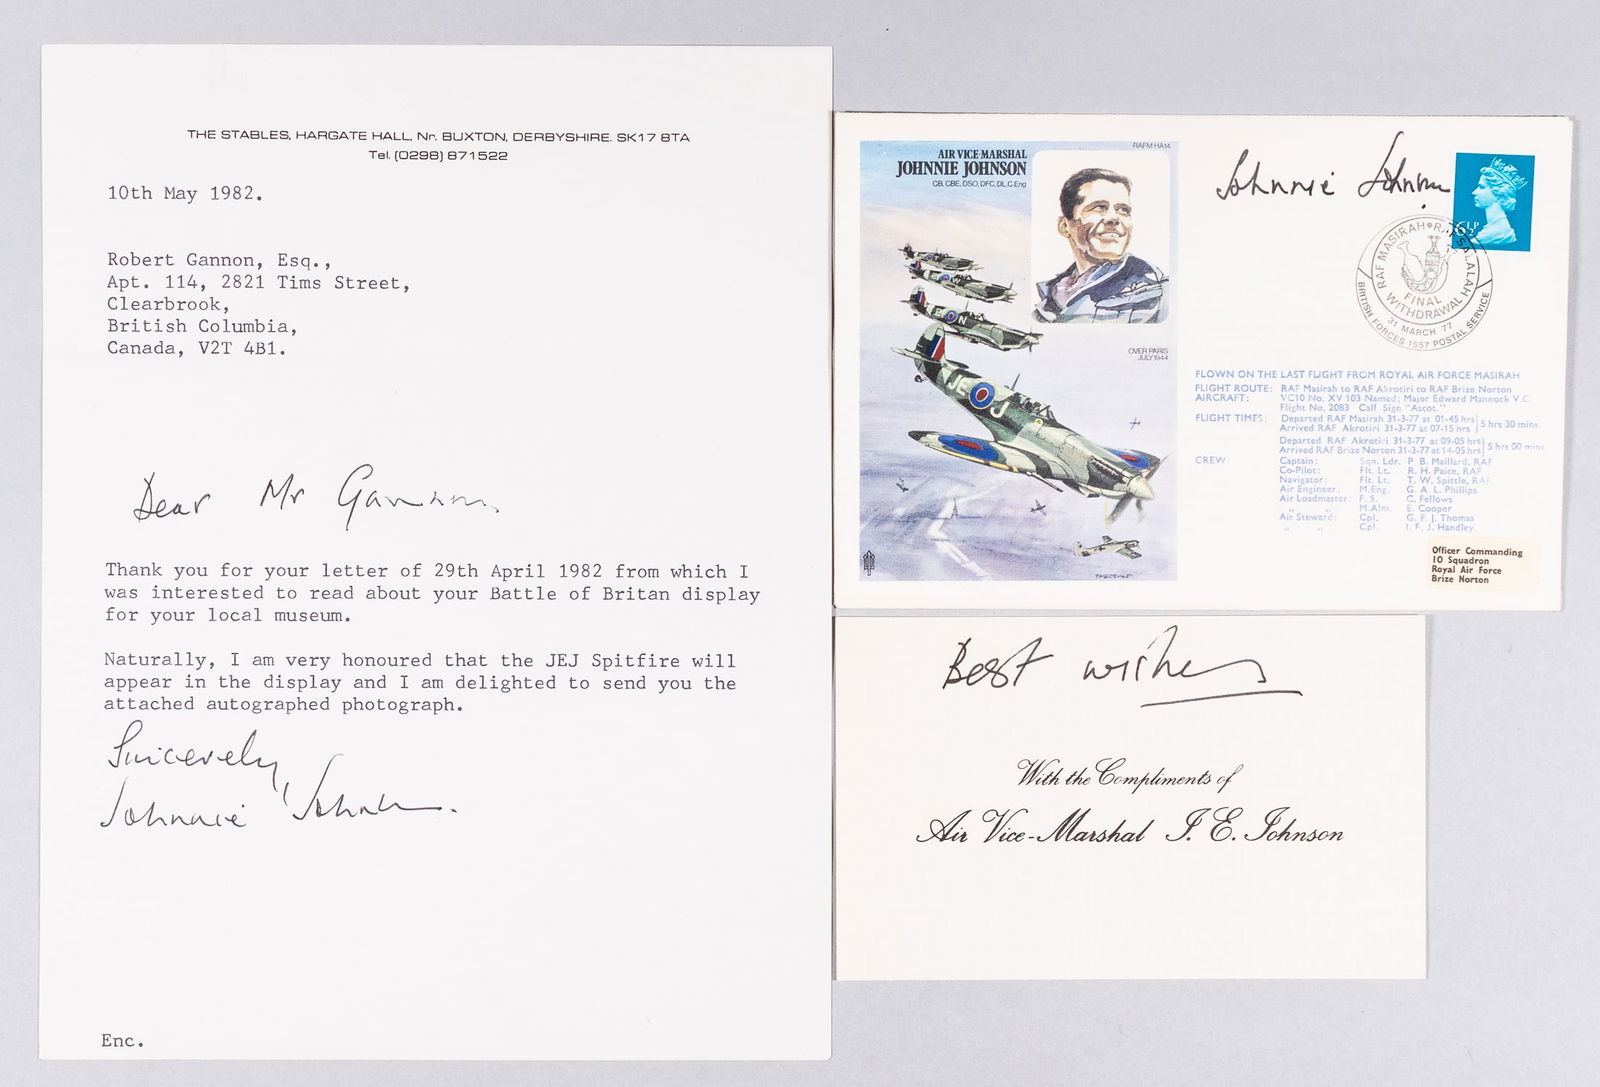 THE STABLES, HARGATE HALL, Nr. BUXTON, DERBYSHIRE. SK17 8TA
Tel. (0298) 871522
10th May 1982.
Robert Gannon, Esq.,
Apt. 114, 2821 Tims Street,
Clearbrook,
British Columbia,
Canada, V2T 4B1.
Dear Mr Gannon,
Thank you for your letter of 29th April 1982 from which I
was interested to read about your Battle of Britan display
for your local museum.
Naturally, I am very honoured that the JEJ Spitfire will
appear in the display and I am delighted to send you the
attached autographed photograph.
Sincerely,
Johnnie Johnson.
Enc.
RAFM HA14
AIR VICE-MARSHAL
JOHNNIE JOHNSON
CB, CBE, DSO, DFC, DL, C.Eng
OVER PARIS
JULY 1944
JE J
Johnnie Johnson
6½P
RAF MASIRAH • RAF SALALAH
FINAL
WITHDRAWAL
31 MARCH 77
BRITISH FORCES 1557 POSTAL SERVICE
FLOWN ON THE LAST FLIGHT FROM ROYAL AIR FORCE MASIRAH
FLIGHT ROUTE: RAF Masirah to RAF Akrotiri to RAF Brize Norton
AIRCRAFT: VC10 No. XV 103 Named: Major Edward Mannock V.C.
Flight No. 2083 Call Sign "Ascot."
FLIGHT TIMES: Departed RAF Masirah 31-3-77 at 01-45 hrs
Arrived RAF Akrotiri 31-3-77 at 07-15 hrs 5 hrs 30 mins
Departed RAF Akrotiri 31-3-77 at 09-05 hrs
Arrived RAF Brize Norton 31-3-77 at 14-05 hrs 5 hrs 00 mins
CREW: Captain: Sqn. Ldr. P. B. Maillard, RAF
Co-Pilot: Flt. Lt. R. H. Paice, RAF
Navigator: Flt. Lt. T. W. Spittle, RAF
Air Engineer: M.Eng. G. A. L. Phillips
Air Loadmaster: F. S. C. Fellows
" " M.Alm. E. Cooper
Air Steward: Cpl. G. F. J. Thomas
" " Cpl. I. F. J. Handley
Officer Commanding
10 Squadron
Royal Air Force
Brize Norton
Best wishes
With the Compliments of
Air Vice-Marshal J. E. Johnson